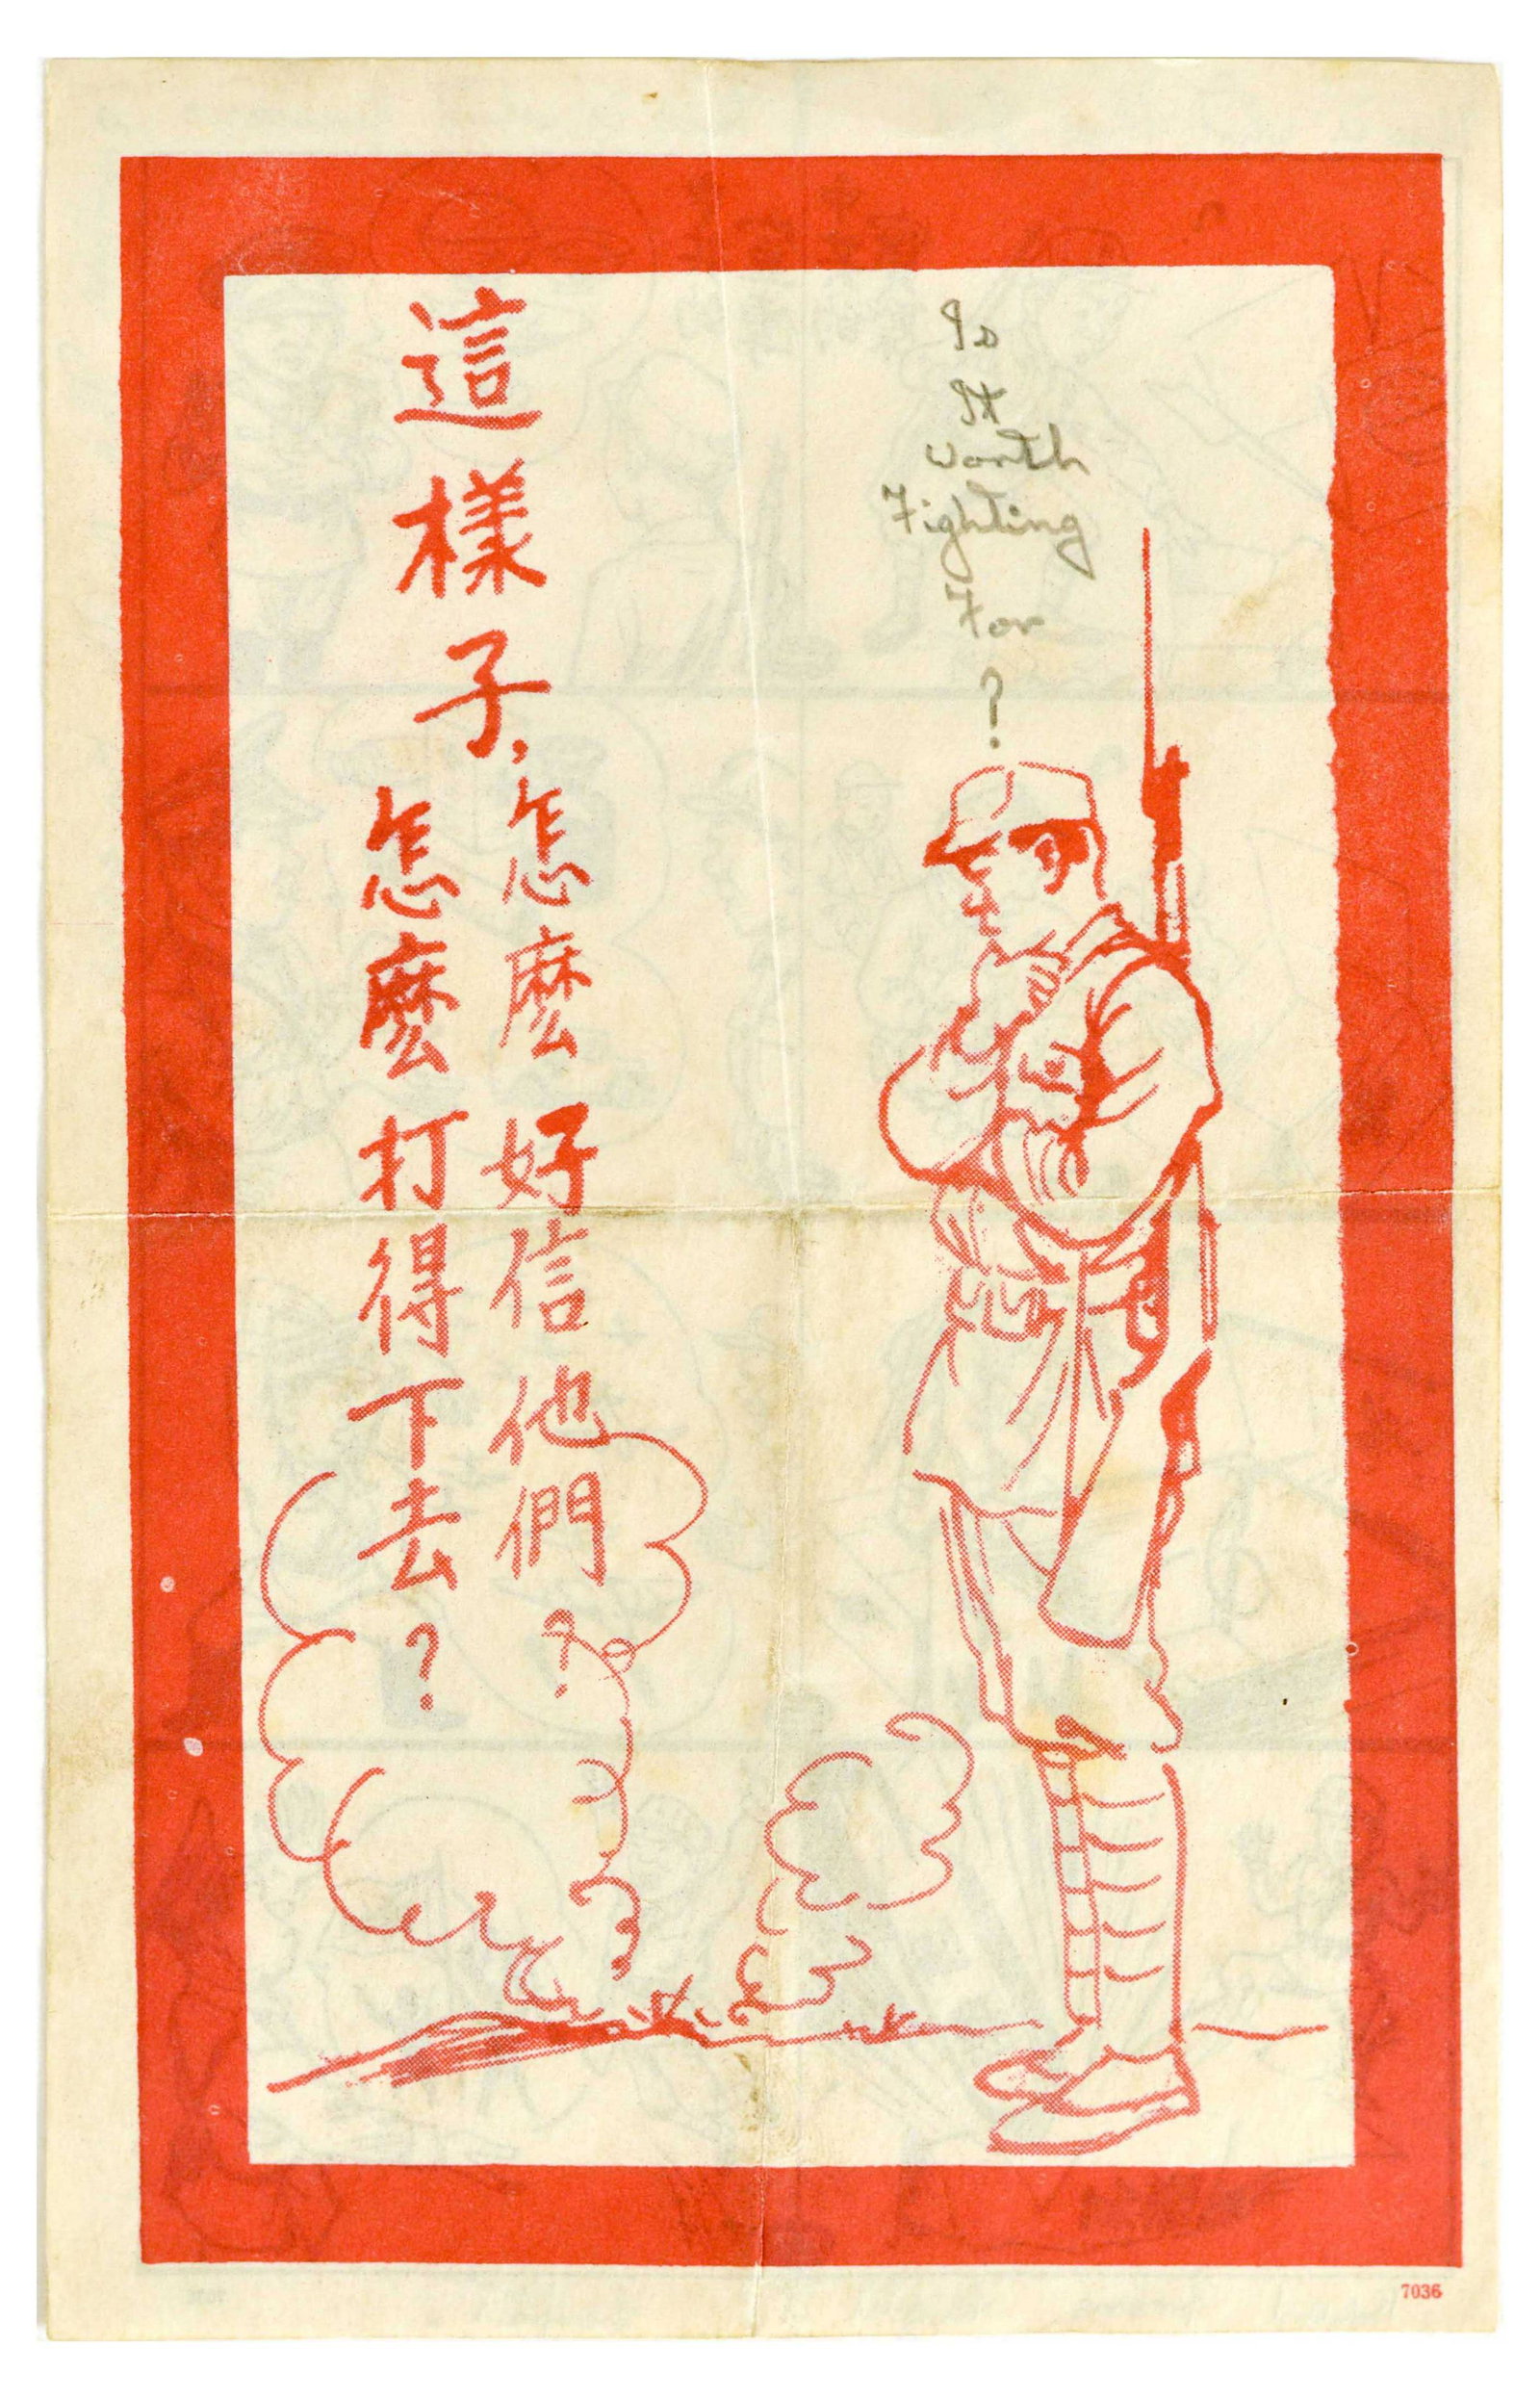 這樣子,
怎麼好信他們?
怎麼打得下去?
Is
It
Worth
Fighting
For
?
7036